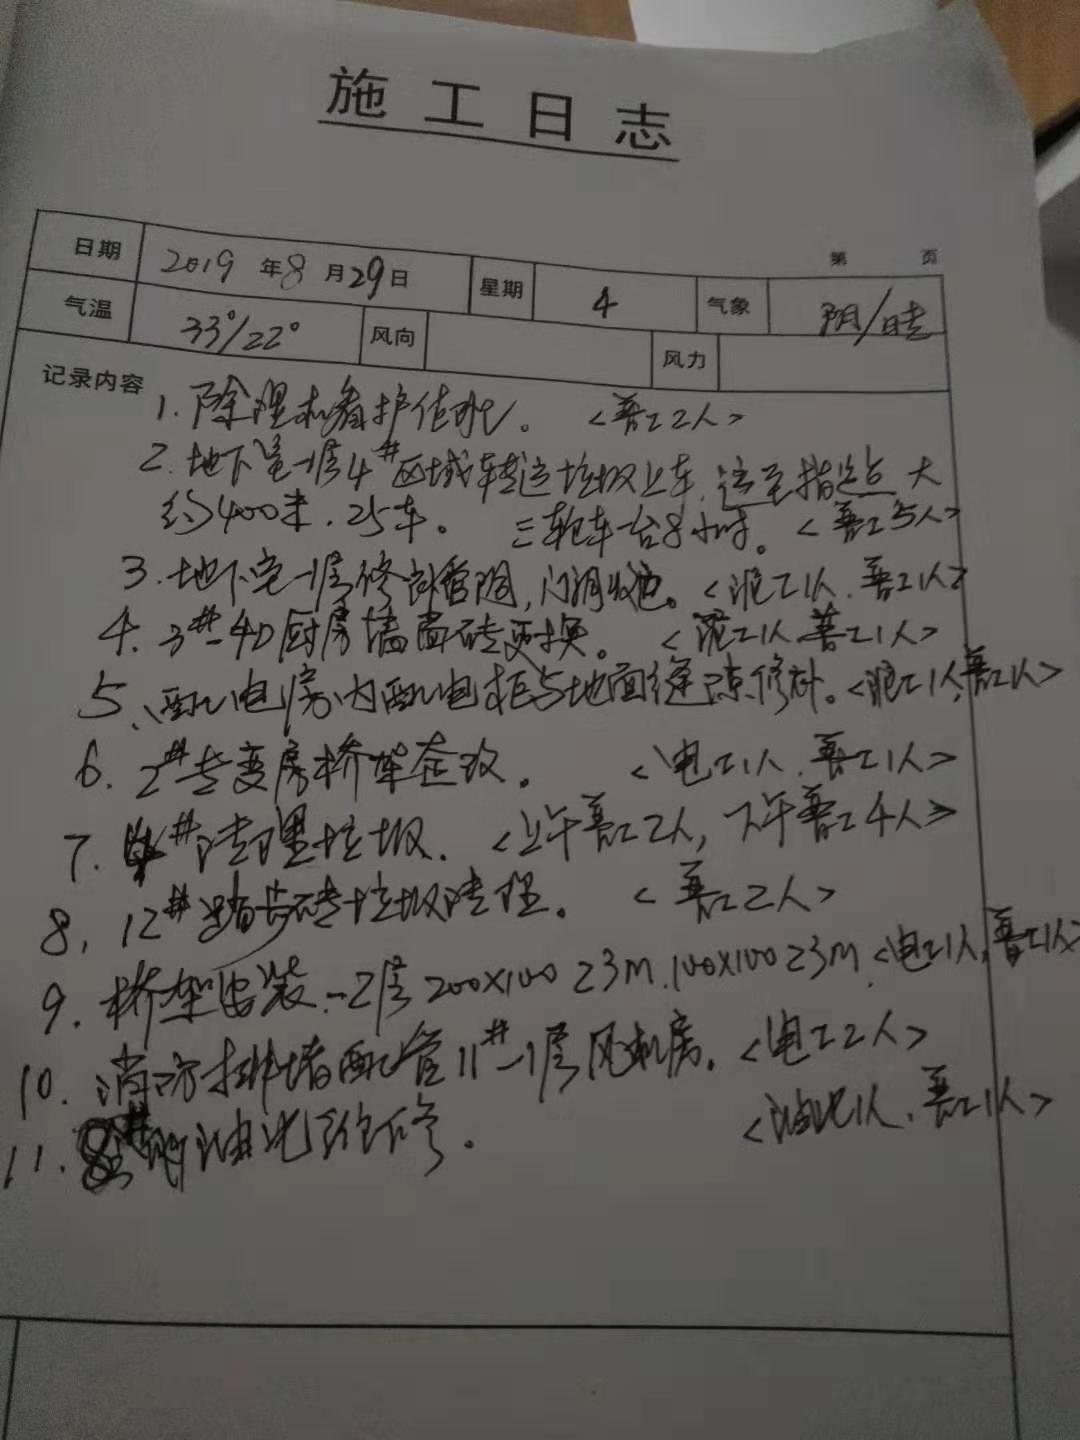 施工日志
第 页
日期 2019年8月29日 星期 4 气象 阴/晴
气温 33°/22° 风向 风力
记录内容
1. 除理看护住院。 <普工2人>
2. 地下室一层4#区域转运垃圾上车,运至指定点 大
约400米.25车。 三轮车一台8小时。 <普工5人>
3. 地下室一层修,门洞收。 <泥工1人.普工1人>
4. 3#-4D厨房墙面砖更换。 <泥工1人.普工1人>
5、配电房内配电柜与地面缝隙修补。<泥工1人,普工1人>
6. 2#专变房桥架整改。 <电工1人.普工1人>
7. #清理垃圾. <上午普工2人,下午普工4人>
8, 12#踏步砖垃圾清理。 <普工2人>
9. 桥架安装-2层200X100 23M.100X100 23M.<电工1人,普工1人>
10. 消防排堵配管11#-1层风机房. <电工2人>
11. 8#油化维修. <油化1人.普工1人>